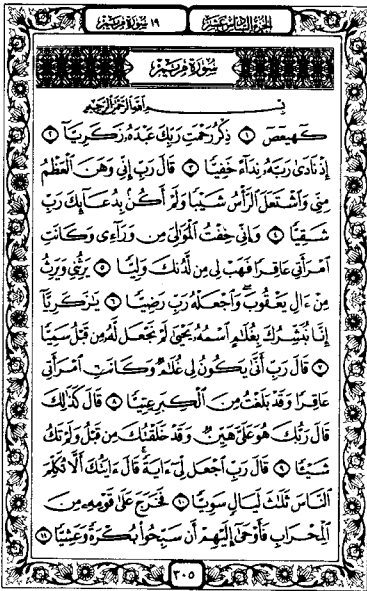 الجزء السادس عشر
١٩ سورة مريم
سورة مريم
بسم الله الرحمن الرحيم
كهيعص ١ ذِكْرُ رَحْمَتِ رَبِّكَ عَبْدَهُۥ زَكَرِيَّآ ٢
إِذْ نَادَىٰ رَبَّهُۥ نِدَآءً خَفِيًّا ٣ قَالَ رَبِّ إِنِّى وَهَنَ ٱلْعَظْمُ
مِنِّى وَٱشْتَعَلَ ٱلرَّأْسُ شَيْبًا وَلَمْ أَكُنۢ بِدُعَآئِكَ رَبِّ
شَقِيًّا ٤ وَإِنِّى خِفْتُ ٱلْمَوَٰلِىَ مِن وَرَآءِى وَكَانَتِ
ٱمْرَأَتِى عَاقِرًا فَهَبْ لِى مِن لَّدُنكَ وَلِيًّا ٥ يَرِثُنِى وَيَرِثُ
مِنْ ءَالِ يَعْقُوبَ ۖ وَٱجْعَلْهُ رَبِّ رَضِيًّا ٦ يَٰزَكَرِيَّآ
إِنَّا نُبَشِّرُكَ بِغُلَٰمٍ ٱسْمُهُۥ يَحْيَىٰ لَمْ نَجْعَل لَّهُۥ مِن قَبْلُ سَمِيًّا
٧ قَالَ رَبِّ أَنَّىٰ يَكُونُ لِى غُلَٰمٌ وَكَانَتِ ٱمْرَأَتِى
عَاقِرًا وَقَدْ بَلَغْتُ مِنَ ٱلْكِبَرِ عِتِيًّا ٨ قَالَ كَذَٰلِكَ
قَالَ رَبُّكَ هُوَ عَلَىَّ هَيِّنٌ وَقَدْ خَلَقْتُكَ مِن قَبْلُ وَلَمْ تَكُ
شَيْـًٔا ٩ قَالَ رَبِّ ٱجْعَل لِّىٓ ءَايَةً ۚ قَالَ ءَايَتُكَ أَلَّا تُكَلِّمَ
ٱلنَّاسَ ثَلَٰثَ لَيَالٍ سَوِيًّا ١٠ فَخَرَجَ عَلَىٰ قَوْمِهِۦ مِنَ
ٱلْمِحْرَابِ فَأَوْحَىٰٓ إِلَيْهِمْ أَن سَبِّحُوا۟ بُكْرَةً وَعَشِيًّا ١١
٣٠٥